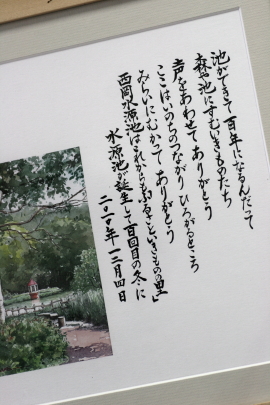 池ができて百年になるんだって
森や池にすむいきものたち
声をあわせてありがとう
ここはいのちのつながりひろがるところ
みらいにむかってありがとう
西岡水源池はこれからもふるさといきものの里」
水源池が誕生して百回目の冬に
二〇一〇年一二月四日